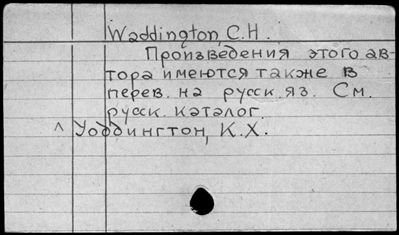 Waddington, C.H.
Произведения этого ав-
тора имеются также в
перев. на русск. яз. См.
русск. каталог.
^ Уоддингтон, К.Х.